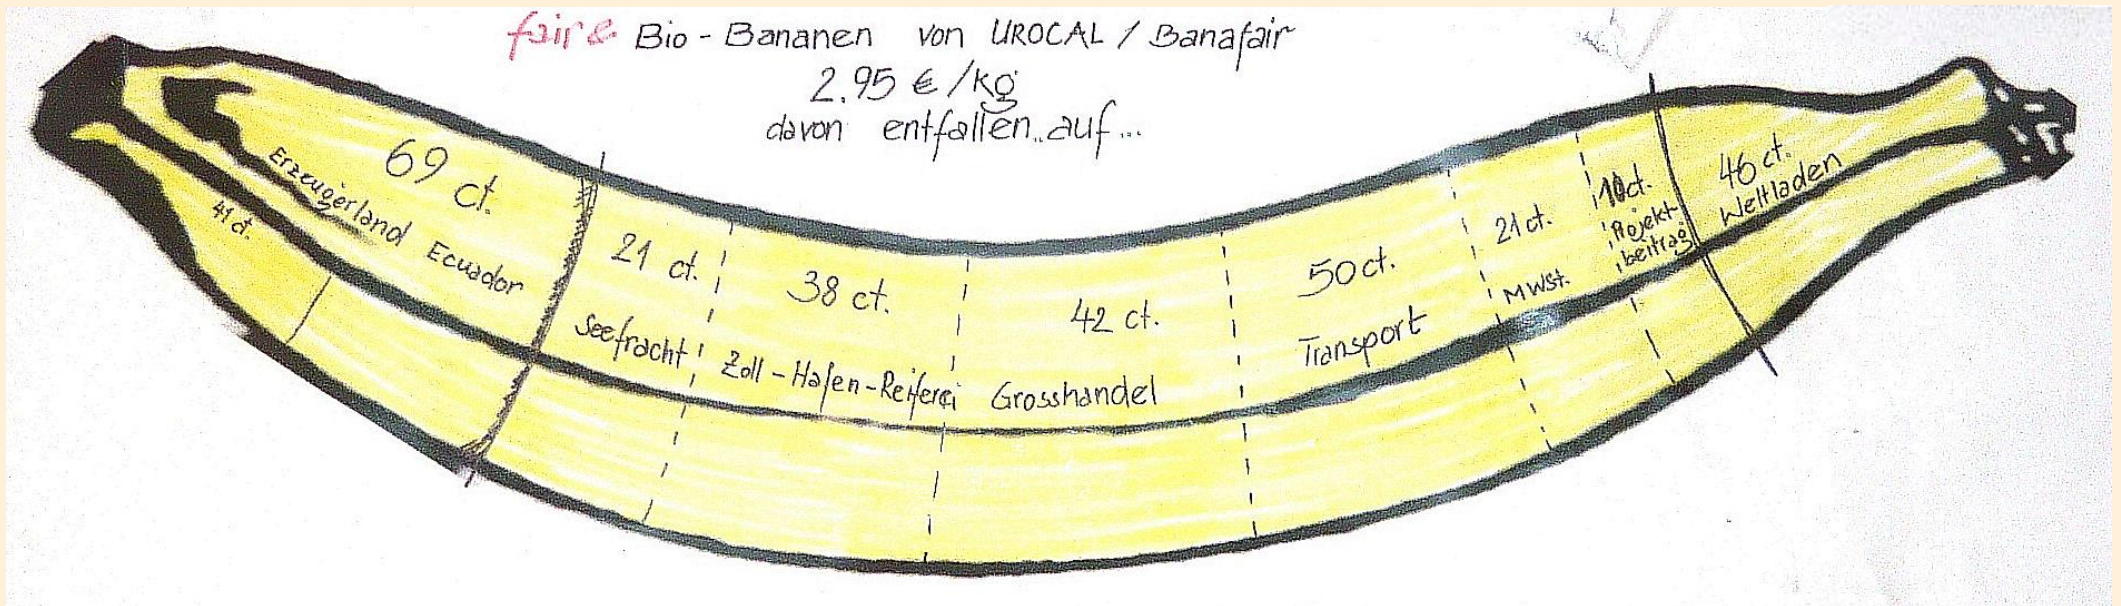 faire Bio - Bananen von UROCAL / Banafair
2.95 € /kg
davon entfallen..auf...
69 ct.
Erzeugerland Ecuador
41 ct.
21 ct.
Seefracht
38 ct.
Zoll - Hafen - Reiferei
42 ct.
Grosshandel
50 ct.
Transport
21 ct.
MWSt.
10 ct.
Projekt-
beitrag
46 ct.
Weltladen